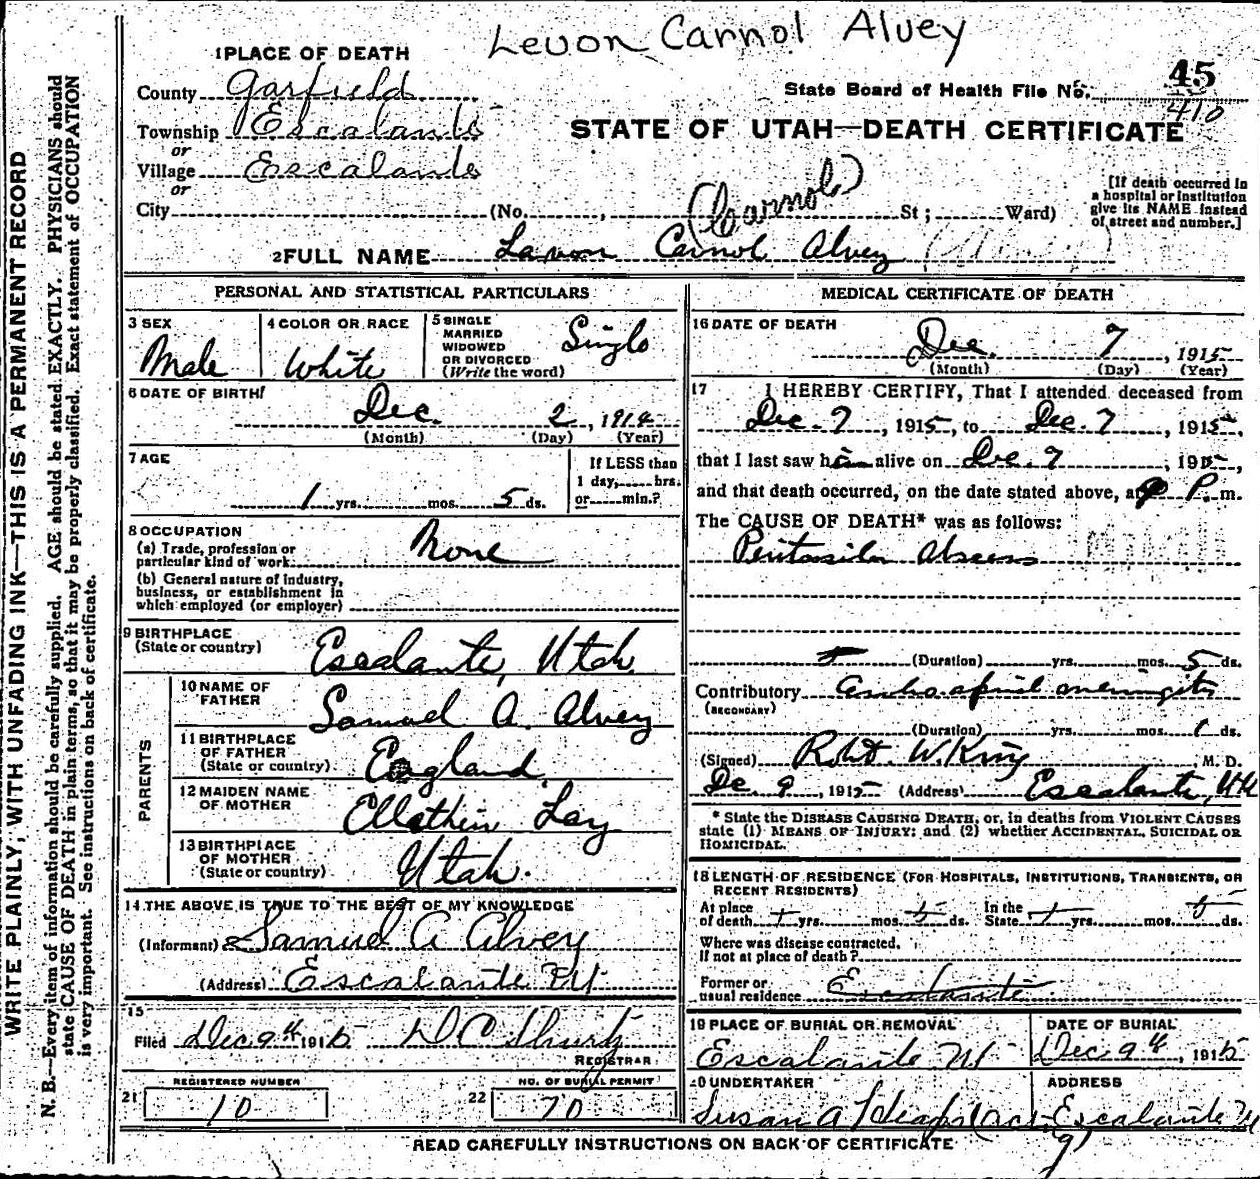 Levon Carnol Alvey
1 PLACE OF DEATH
County Garfield
Township Escalante
or
Village Escalante
or
City (No. , St; Ward)
State Board of Health File No. 45
410
STATE OF UTAH—DEATH CERTIFICATE
[If death occurred in
a hospital or institution
give its NAME instead
of street and number.]
(Carnol)
2 FULL NAME Lavon Carnol Alvey
PERSONAL AND STATISTICAL PARTICULARS
3 SEX
Male
4 COLOR OR RACE
White
5 SINGLE
MARRIED
WIDOWED
OR DIVORCED
(Write the word)
Single
6 DATE OF BIRTH
Dec. 2, 1914
(Month) (Day) (Year)
7 AGE
1 yrs. mos. 5 ds.
If LESS than
1 day, hrs.
or min.?
8 OCCUPATION
(a) Trade, profession or
particular kind of work
None
(b) General nature of industry,
business, or establishment in
which employed (or employer)
9 BIRTHPLACE
(State or country)
Escalante, Utah
PARENTS
10 NAME OF
FATHER
Samuel A. Alvey
11 BIRTHPLACE
OF FATHER
(State or country)
England
12 MAIDEN NAME
OF MOTHER
Lay
13 BIRTHPLACE
OF MOTHER
(State or country)
Utah.
14 THE ABOVE IS TRUE TO THE BEST OF MY KNOWLEDGE
(Informant) Samuel A Alvey
(Address) Escalante Ut
15
Filed Dec 9th 1915 D C Shurtz
REGISTRAR
REGISTERED NUMBER
21 10
NO. OF BURIAL PERMIT
22 70
MEDICAL CERTIFICATE OF DEATH
16 DATE OF DEATH
Dec. 7, 1915
(Month) (Day) (Year)
17 I HEREBY CERTIFY, That I attended deceased from
Dec. 7, 1915, to Dec. 7, 1915,
that I last saw him alive on Dec. 7, 1915,
and that death occurred, on the date stated above, at P. m.
The CAUSE OF DEATH* was as follows:
Abscess
(Duration) yrs. mos. 5 ds.
Contributory meningitis
(SECONDARY)
(Duration) yrs. mos. 1 ds.
(Signed) Robt. W. King, M. D.
Dec 9, 1915 (Address) Escalante, Utah
* State the DISEASE CAUSING DEATH, or, in deaths from VIOLENT CAUSES
state (1) MEANS OF INJURY; and (2) whether ACCIDENTAL, SUICIDAL OR
HOMICIDAL.
18 LENGTH OF RESIDENCE (FOR HOSPITALS, INSTITUTIONS, TRANSIENTS, OR
RECENT RESIDENTS)
At place
of death 1 yrs. mos. 5 ds. In the
State 1 yrs. mos. 5 ds.
Where was disease contracted,
If not at place of death?
Former or
usual residence Escalante
19 PLACE OF BURIAL OR REMOVAL
Escalante Ut
DATE OF BURIAL
Dec 9th, 1915
20 UNDERTAKER
Susan A Heaps (acting)
ADDRESS
Escalante Ut
READ CAREFULLY INSTRUCTIONS ON BACK OF CERTIFICATE
WRITE PLAINLY, WITH UNFADING INK—THIS IS A PERMANENT RECORD
N. B.—Every item of information should be carefully supplied. AGE should be stated EXACTLY. PHYSICIANS should
state CAUSE OF DEATH in plain terms, so that it may be properly classified. Exact statement of OCCUPATION
is very important. See instructions on back of certificate.